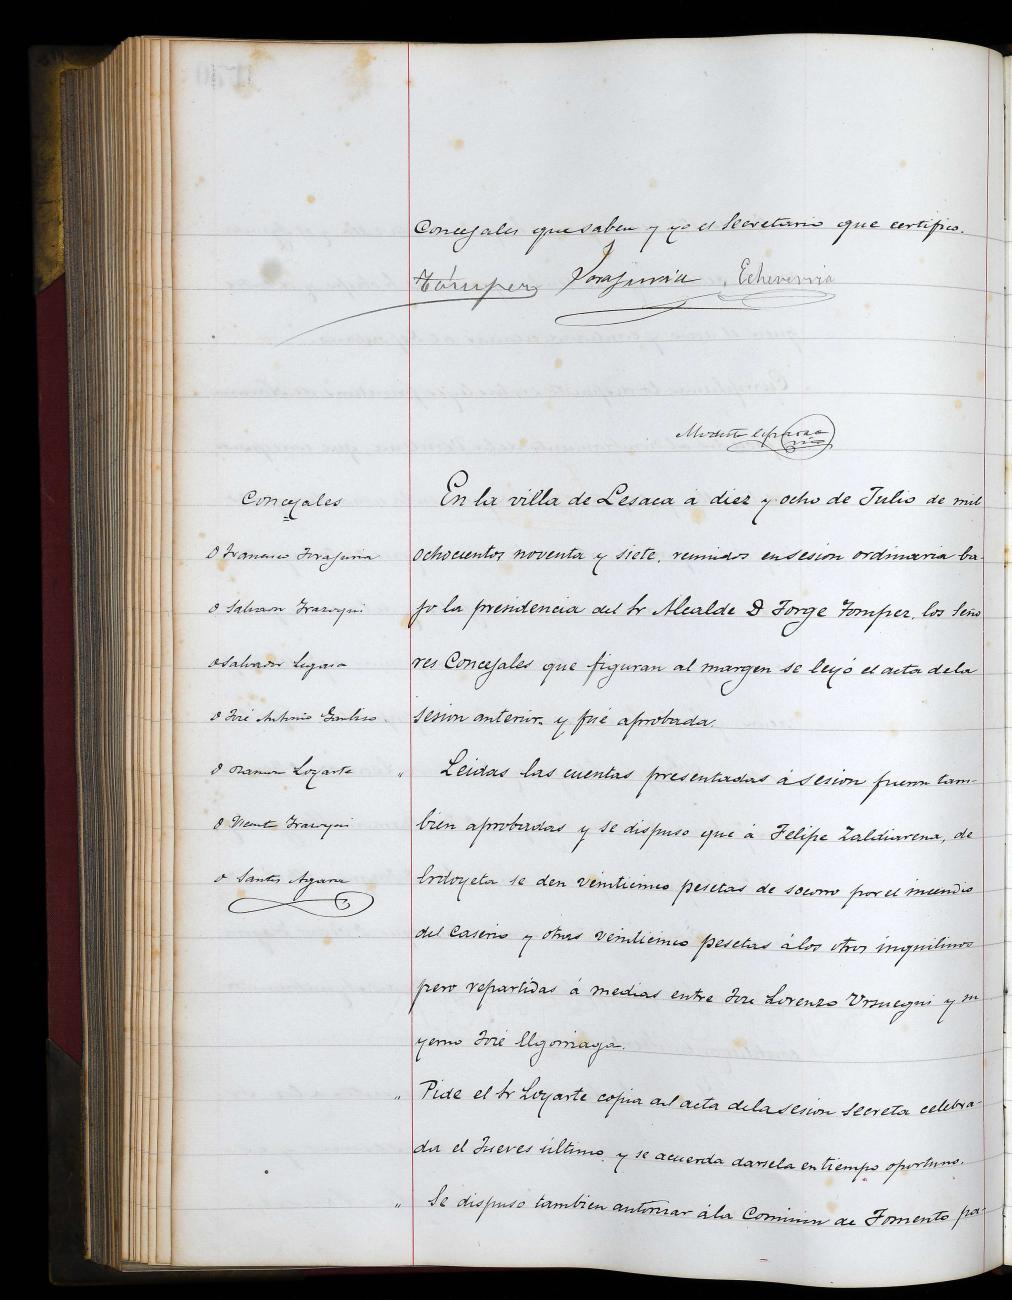 Concejales que saben y yo el Secretario que certifico.
Tómper Yorajuria Echeverria
Modesto
Concejales
D Francisco Yorajuria
D Salvador Legasa
D José Antonio
D Ramon Loyarte
D Vicente Irazoqui
D Santos
En la villa de Lesaca á diez y ocho de Julio de mil
ochocientos noventa y siete, reunidos en sesion ordinaria ba-
jo la presidencia del Sr Alcalde D Jorge Tomper, los Seño
res Concejales que figuran al margen se leyó el acta de la
sesion anterior y fué aprobada.
" Leidas las cuentas presentadas á sesion fueron tam-
bien aprobadas y se dispuso que á Felipe Zalduarena, de
se den veinticinco pesetas de socorro por el incendio
del Caserio y otras veinticinco pesetas á los otros inquilinos
pero repartidas á medias entre José Lorenzo y su
yerno José Elgorriaga.
" Pide el Sr Loyarte copia del acta de la sesion secreta celebra-
da el Jueves último, y se acuerda darsela en tiempo oportuno.
" Se dispuso tambien autorizar á la Comision de Fomento pa-